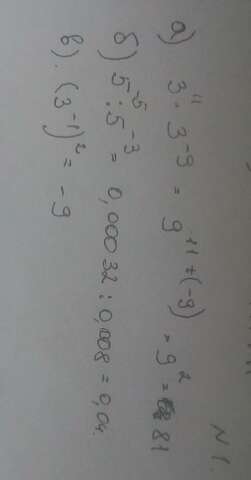 N 1.
а) 3¹¹ · 3⁻⁹ = 9¹¹⁺⁽⁻⁹⁾ = 9² = 81
б) 5⁻⁵ : 5⁻³ = 0,00032 : 0,008 = 0,04.
в). (3⁻¹)² = -9